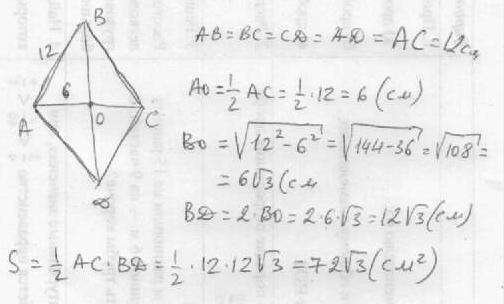 B
12
6
A
O
C
D
AB = BC = CD = AD = AC = 12 см
AO = 1/2 AC = 1/2 · 12 = 6 (см)
BO = √(12² - 6²) = √(144 - 36) = √108 =
= 6√3 (см
BD = 2 · BO = 2 · 6 · √3 = 12√3 (см)
S = 1/2 AC · BD = 1/2 · 12 · 12√3 = 72√3 (см²)